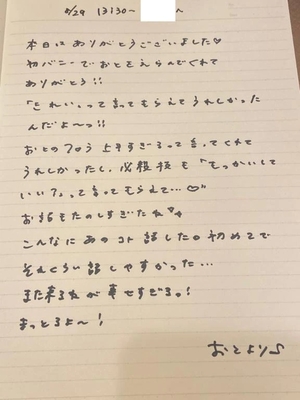 8/29 13:30〜
本日はありがとうございました♡
初バニーでおとをえらんでくれて
ありがとう!!
「きれい」って言ってもらえてうれしかった
んだよ〜っ!!
おとのフロう上手すぎるって言ってくれて
うれしかったし、必殺技も「もっかいして
いい?」って言ってもらえて…♡
お話もたのしすぎたね
こんなにあのコト話したの初めてで
それくらい話しやすかった…
また来るねが幸せすぎるっ!
まっとるよ〜!
おとより♪